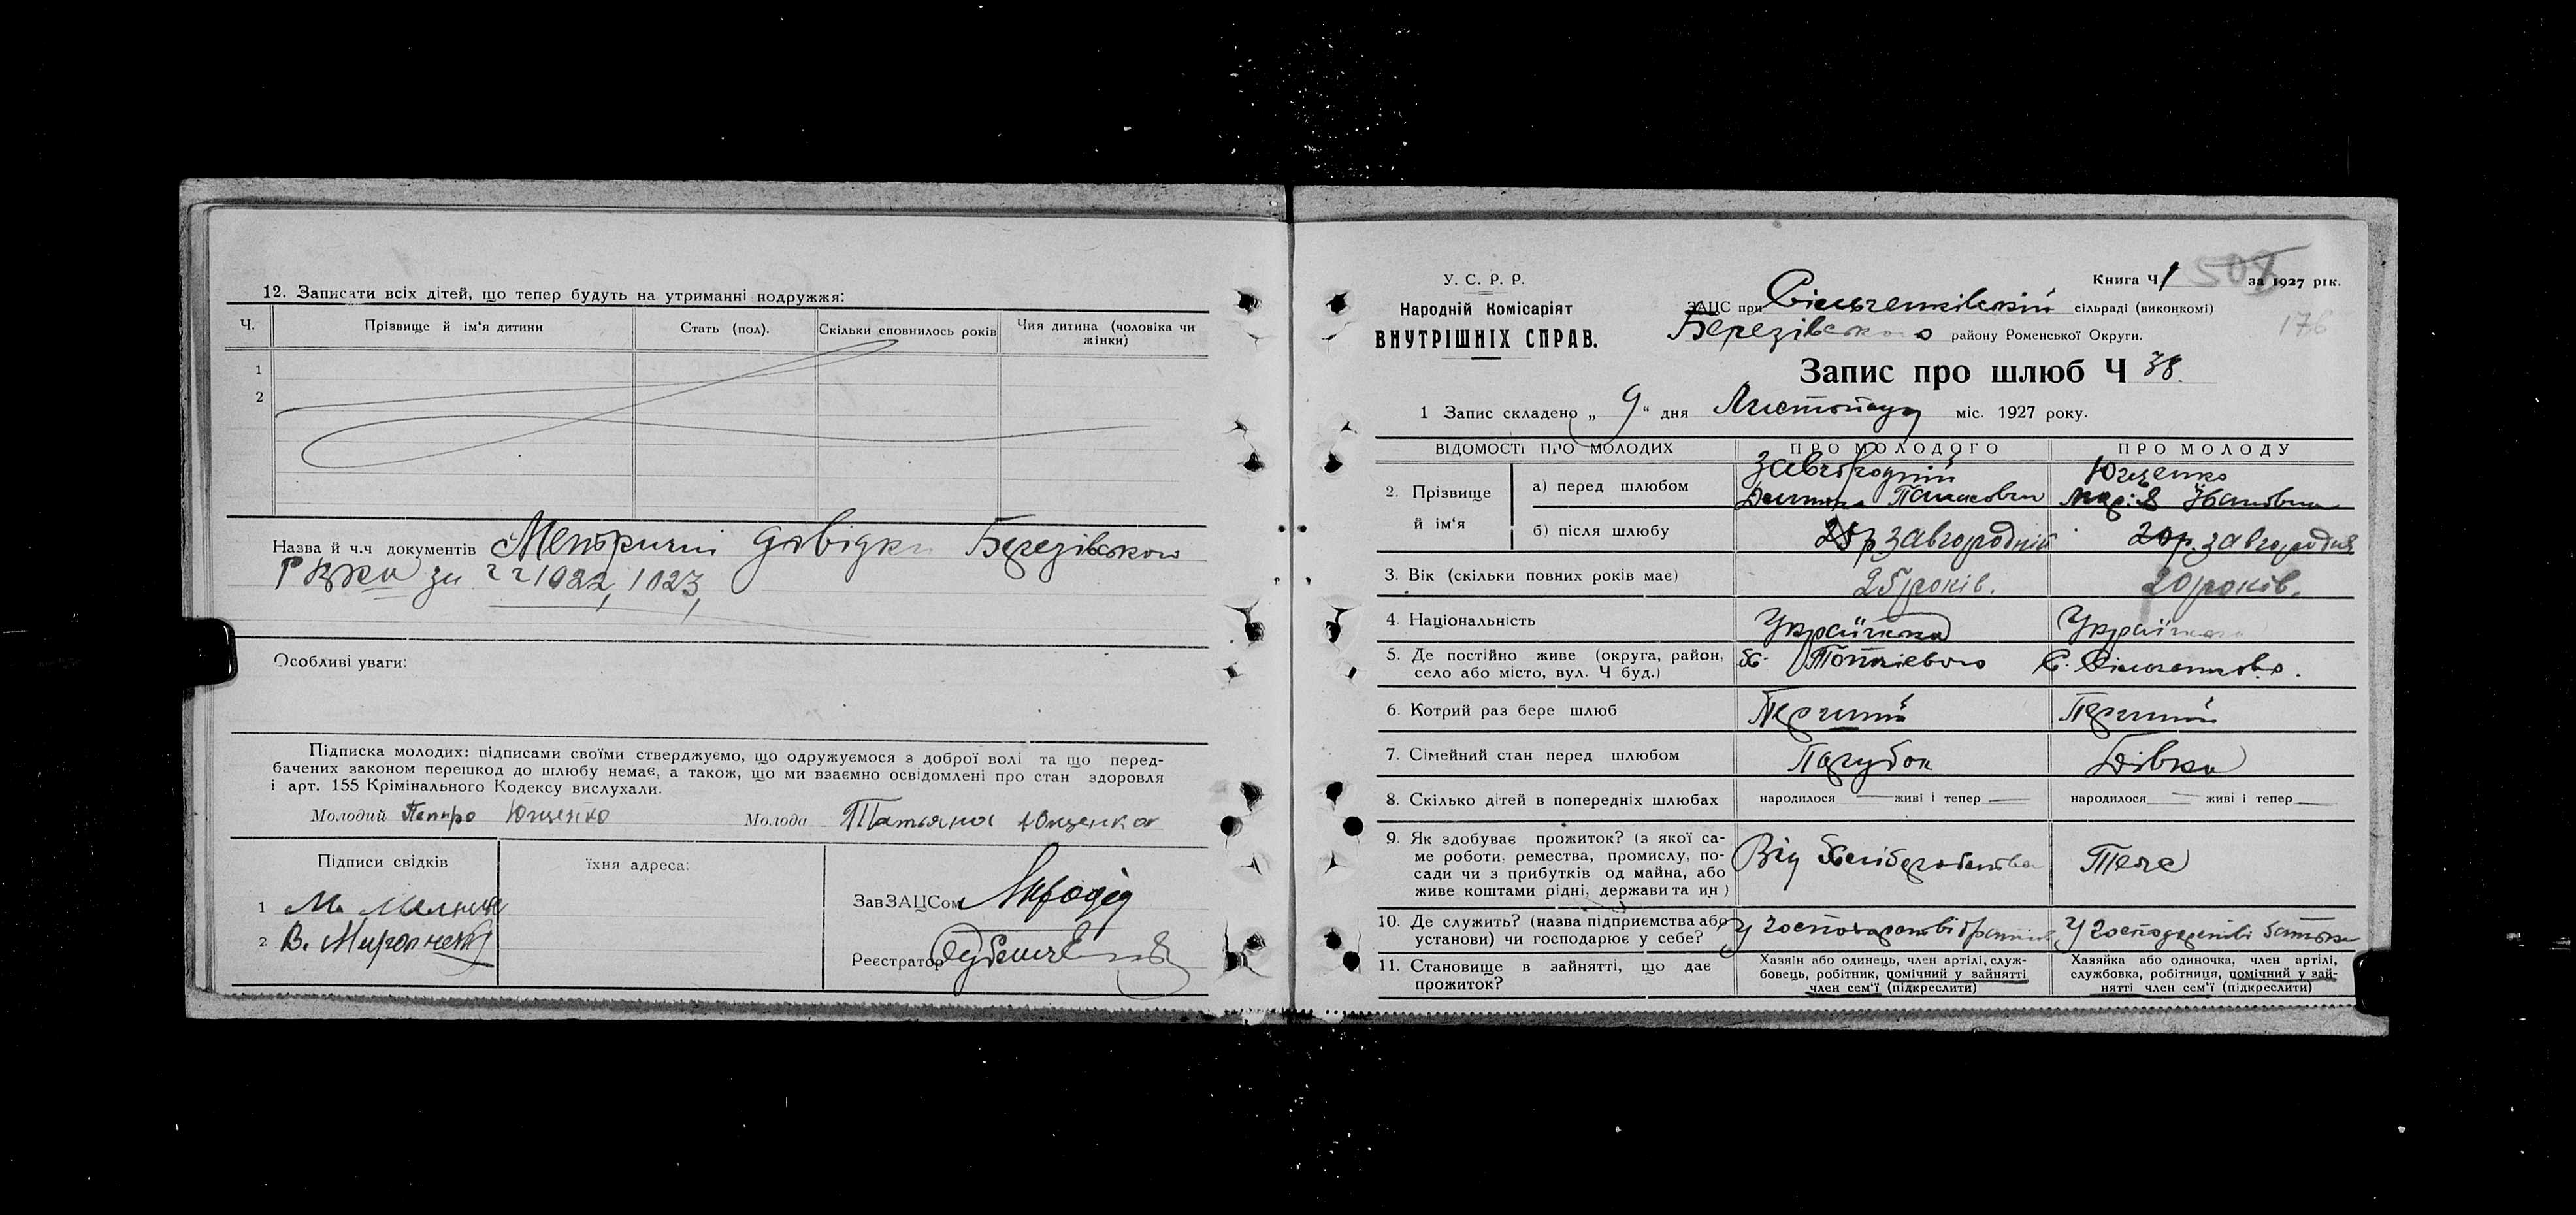 12. Записати всіх дітей, що тепер будуть на утриманні подружжя:
Ч. Прізвище й ім'я дитини Стать (пол). Скільки сповнилось років Чия дитина (чоловіка чи жінки)
1
2
Назва й ч.ч документів Метричні довідки Березівського
РВКа за 1022, 1023,
Особливі уваги:
Підписка молодих: підписами своїми стверджуємо, що одружуємося з доброї волі та що перед-
бачених законом перешкод до шлюбу немає, а також, що ми взаємно освідомлені про стан здоровля
і арт. 155 Крімінального Кодексу вислухали.
Молодий Петро Ющенко Молода Татьяна Ющенко
Підписи свідків їхня адреса:
1 М.
2 В.
ЗавЗАЦСом
Реєстратор
У. С. Р. Р.
Народній Комісаріят
ВНУТРІШНІХ СПРАВ.
Книга Ч 1 507 за 1927 рік.
ЗАЦС при сільраді (виконкомі)
176
Березівського району Роменської Округи.
Запис про шлюб Ч 38.
1 Запис складено „ 9 “ дня Листопаду міс. 1927 року.
ВІДОМОСТІ ПРО МОЛОДИХ ПРО МОЛОДОГО ПРО МОЛОДУ
2. Прізвище й ім'я
а) перед шлюбом Завгородній Панасович Ющенко Марія Івановна
б) після шлюбу 25р Завгородній 20р. Завгородня
3. Вік (скільки повних років має) 25 років. 20 років.
4. Національність Українська Українська
5. Де постійно живе (округа, район,
село або місто, вул. Ч буд.)
6. Котрий раз бере шлюб Перший Перший
7. Сімейний стан перед шлюбом Парубок Дівка
8. Скілько дітей в попередніх шлюбах народилося — живі і тепер — народилося — живі і тепер —
9. Як здобуває прожиток? (з якої са-
ме роботи, ремества, промислу, по-
сади чи з прибутків од майна, або
живе коштами рідні, держави та ин)
Від хліборобства Теж
10. Де служить? (назва підприємства або
установи) чи господарює у себе?
У господарстві У господарстві батька
11. Становище в зайнятті, що дає
прожиток?
Хазяїн або одинець, член артілі, служ-
бовець, робітник, помічний у зайнятті
член сем'ї (підкреслити)
Хазяйка або одиночка, член артілі,
службовка, робітниця, помічний у зай-
нятті член сем'ї (підкреслити)